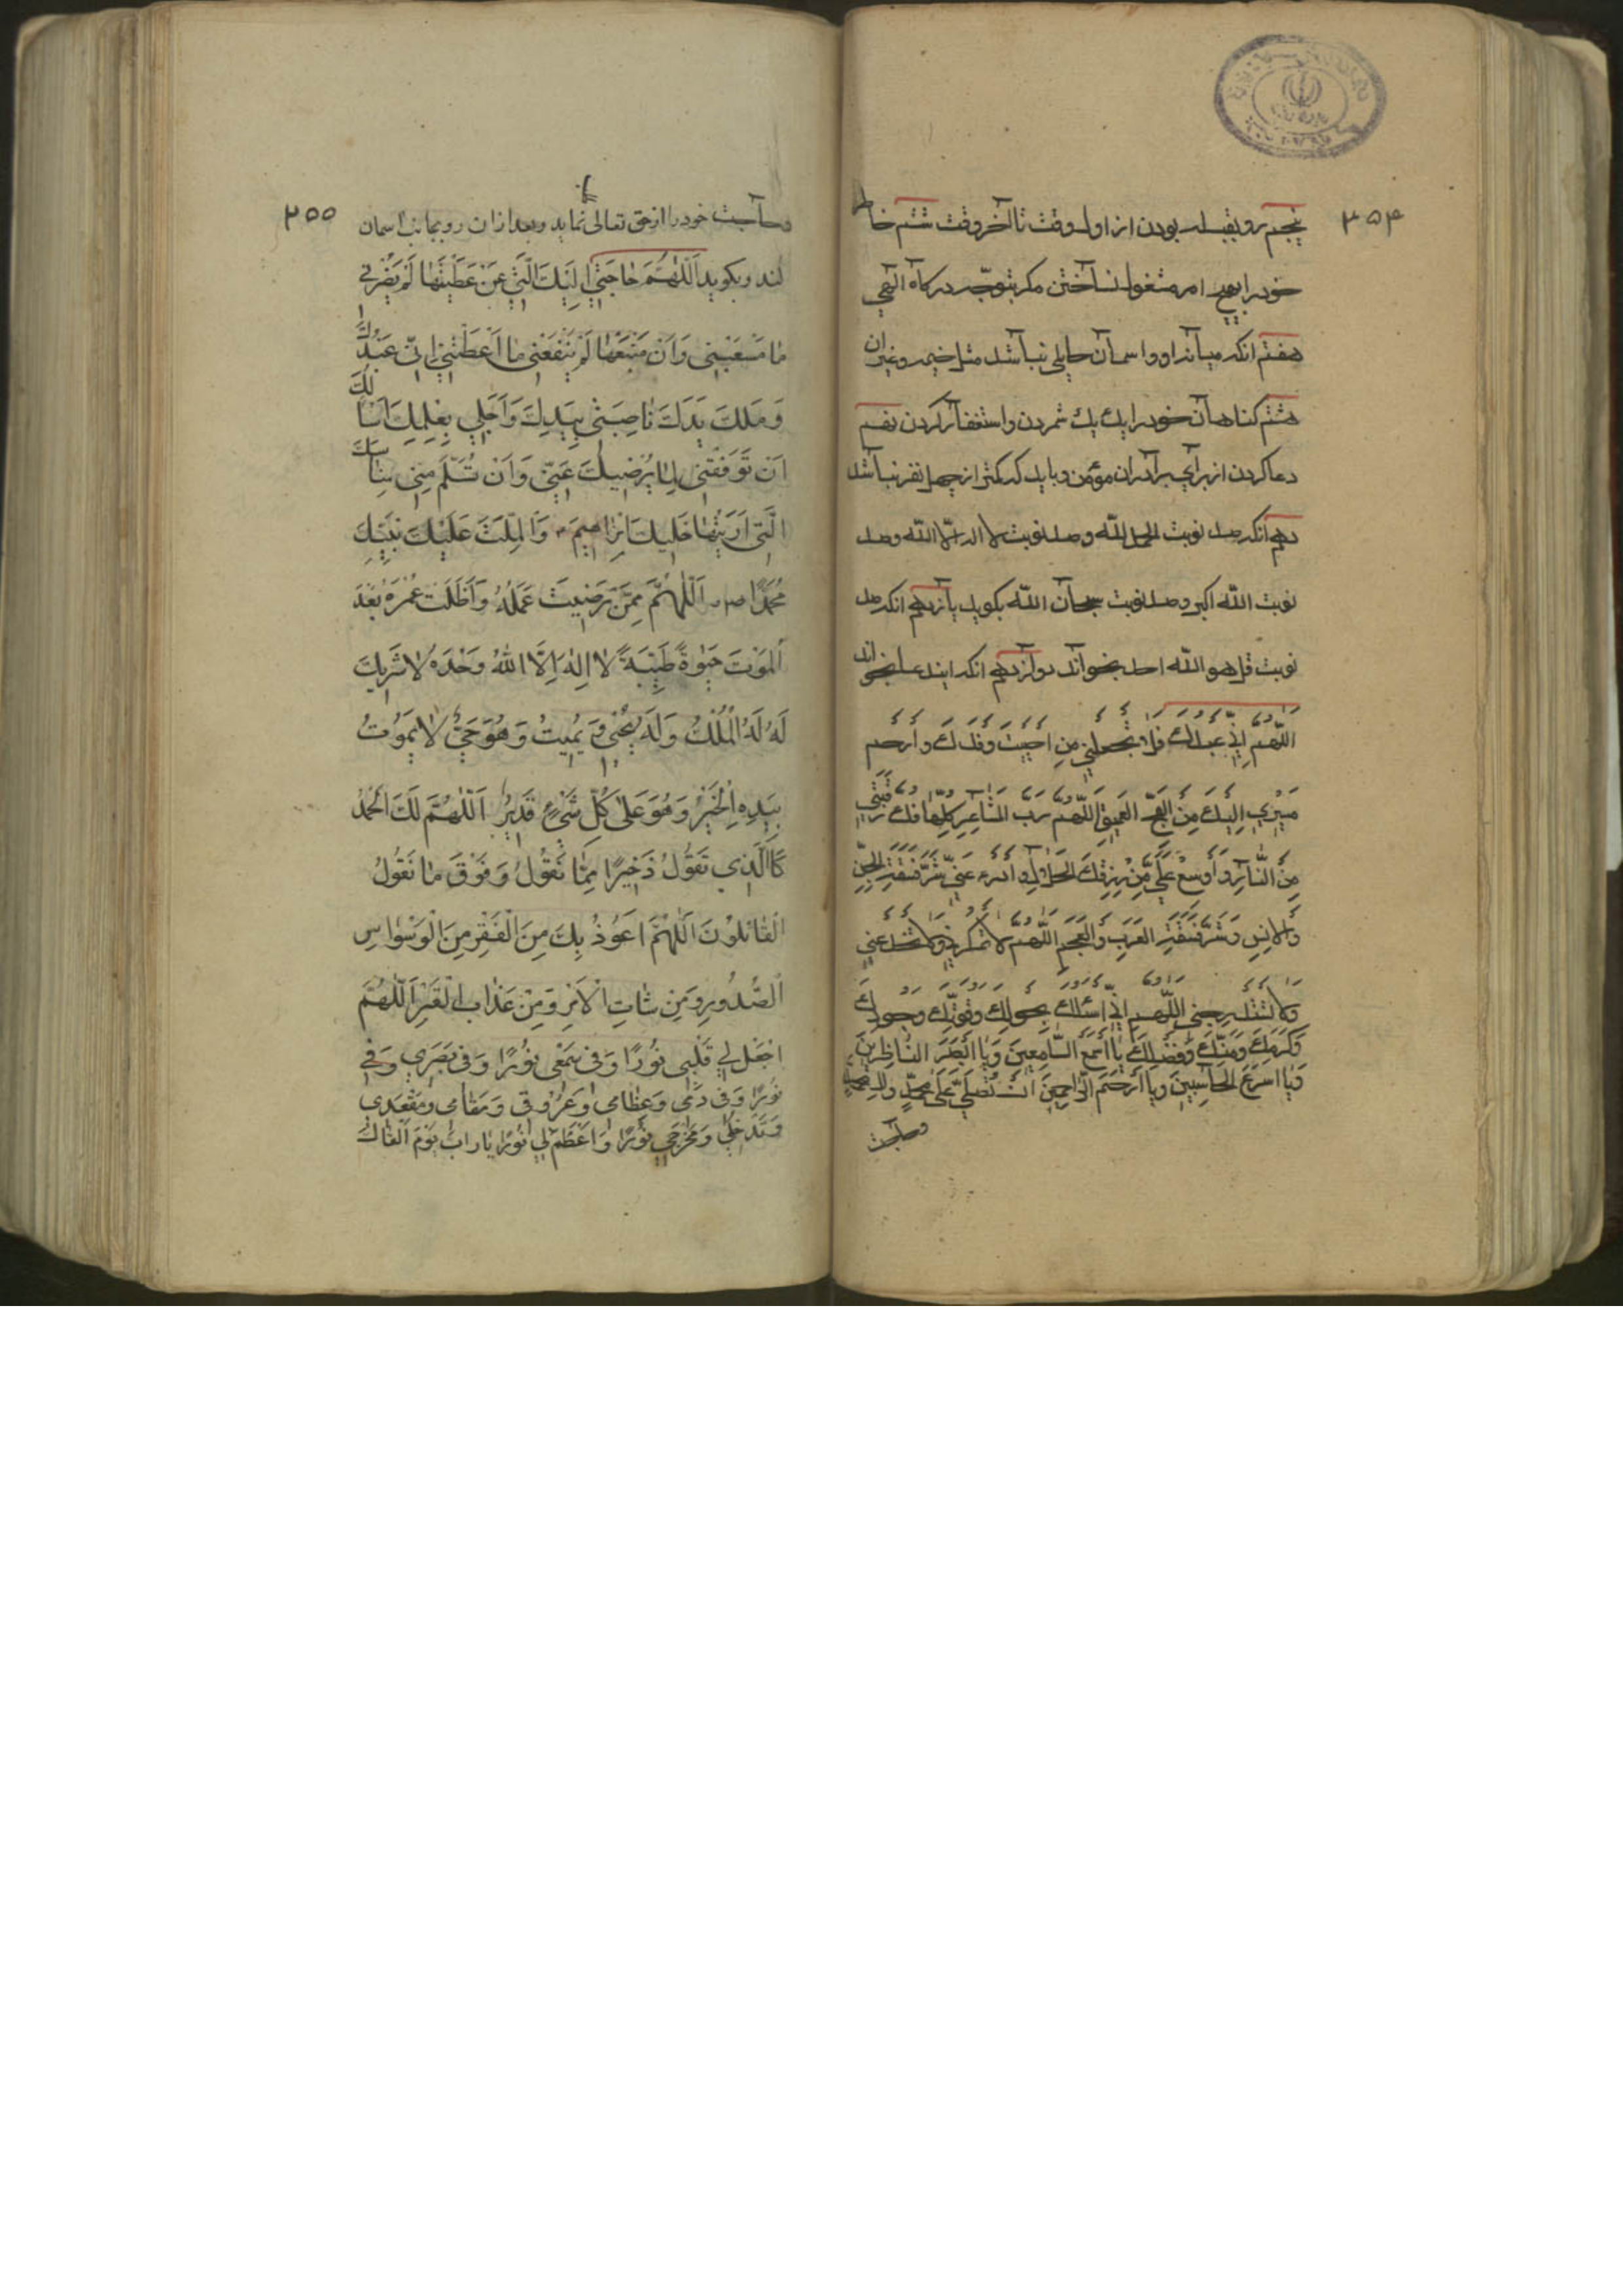 ۲۵۴
پنجم رو بقبله بودن از اول وقت تا آخر وقت ششم خاطر
خود را بهیچ امر مشغول نساختن مکر بتوجّه درکاه آلهی
هفتم انکه میانه او و اسمان حایلی نباشد مثل خیمه و غیر ان
هشتم کناهان خود را یك یك شمردن و استغفار کردن نهم
دعا کردن از برای برادران مؤمن و باید که کمتر از چهل نفر نباشد
دهم انکه صد نوبت الحمد للّه و صد نوبت لا اله الّا اللّه و صد
نوبت اللّه اکبر و صد نوبت سبحان اللّه بکوید یازدهم انکه صد
نوبت قل هو اللّه احد بخواند دوازدهم انکه این دعا بخواند
اللّهم اِنّي عبدك فلا تجعلني مِن اخيبَ وفدك وارحم
مَسِيرِي اِليكَ مِنَ الفَجّ العَميقِ اللّهم رَبّ المشاعِرِ كلّها فك رَقَبَتي
مِنَ النّارِ وَاَوسِعْ عَلَيَّ مِن رِزقِكَ الحلال وادرء عَنّي شَرّ فَسَقَةِ الجِنّ
وَالاِنِسِ وَشَرّ فَسَقَةِ العَرَبِ وَالعَجم اللّهُمّ لا تمكر بي ولا تخدعني
ولا تستدرجني اللّهم اِنّي اَسئلك بحولك وقوّتك وجودك
وَكَرَمِكَ وَمَنّكَ وَفضلِكَ يا اَسمَعَ السّامِعينَ وَيا ابصَرَ النّاظِرينَ
وَيا اسرَعَ الحاسِبينَ ويا ارحَمَ الرّاحِمينَ اَنْ تُصلّي عَلى محمّدٍ وال محمد
و حاجت
۲۵۵
و حاجت خود را از حق تعالی نماید و بعد از ان رو بجانب اسمان
کند و بکوید اَللّهُمَّ حاجَتي اِلَيْكَ الَّتي عَنْ عَطَيْتَها لَمْ يَضُرّني
ما مَنَعْتَني وَاَنْ مَنَعْتَها لَمْ يَنْفَعْني ما اَعْطَيْتَني اِنّي عَبْدُكَ
وَمَلك يَدَكَ ناصِيَتي بِيَدِكَ وَاَجَلي بِعِلمِكَ اَسْاَلُكَ
اَنْ تَوَفّقَني لِما يُرْضيكَ عَنّي وَاَنْ تُسَلّمَ مِنّي مَناسِكَ
الَّتي اَرَيْتَها خَليلَكَ اِبْراهيمَ وَالمِلّتَ عَلَيْكَ نَبيّكَ
مُحَمَّدًا ص اَللّهُمَّ مِمَّنْ رَضيتَ عَمَلَهُ وَاَطَلْتَ عُمْرَهُ بَعْدَ
اَلْمَوْتَ حَيوةً طَيّبَةً لا اِلهَ اِلَّا اللهُ وَحْدَهُ لا شَريكَ
لَهُ لَهُ المُلْكُ وَلَهُ يُحْيي وَيُميتُ وَهُوَ حَيٌّ لا يَمُوتُ
بِيَدِهِ الْخَيْرُ وَهُوَ عَلى كُلِّ شَيْءٍ قَديرٌ اَللّهُمَّ لَكَ الْحَمْدُ
كَالَّذي تَقُولُ ذَخيرًا مِمّا نَقُولُ وَفَوْقَ ما نَقُولُ
الْقائلونَ اَللّهُمَّ اَعُوذُ بِكَ مِنَ الْفَقْرِ مِنَ الْوَسْواسِ
الصُّدُورِ وَمِن شتاتِ الْاَمْرِ وَمِنْ عَذابِ الْقَبْرِ اَللّهُمَّ
اجْعَلْ لي قَلْبي نُورًا وَفي سَمْعي نُورًا وَفي بَصَري وَفي
نُورًا وَفي دَمي وَعِظامي وَعُرُوقي وَمَقامي وَمَقْعَدي
وَمَدْخَلي وَمَخْرَجي نُورًا وَاَعْظَمْ لي نُورًا يا رَبّ يَوْمَ اَلْقاكَ